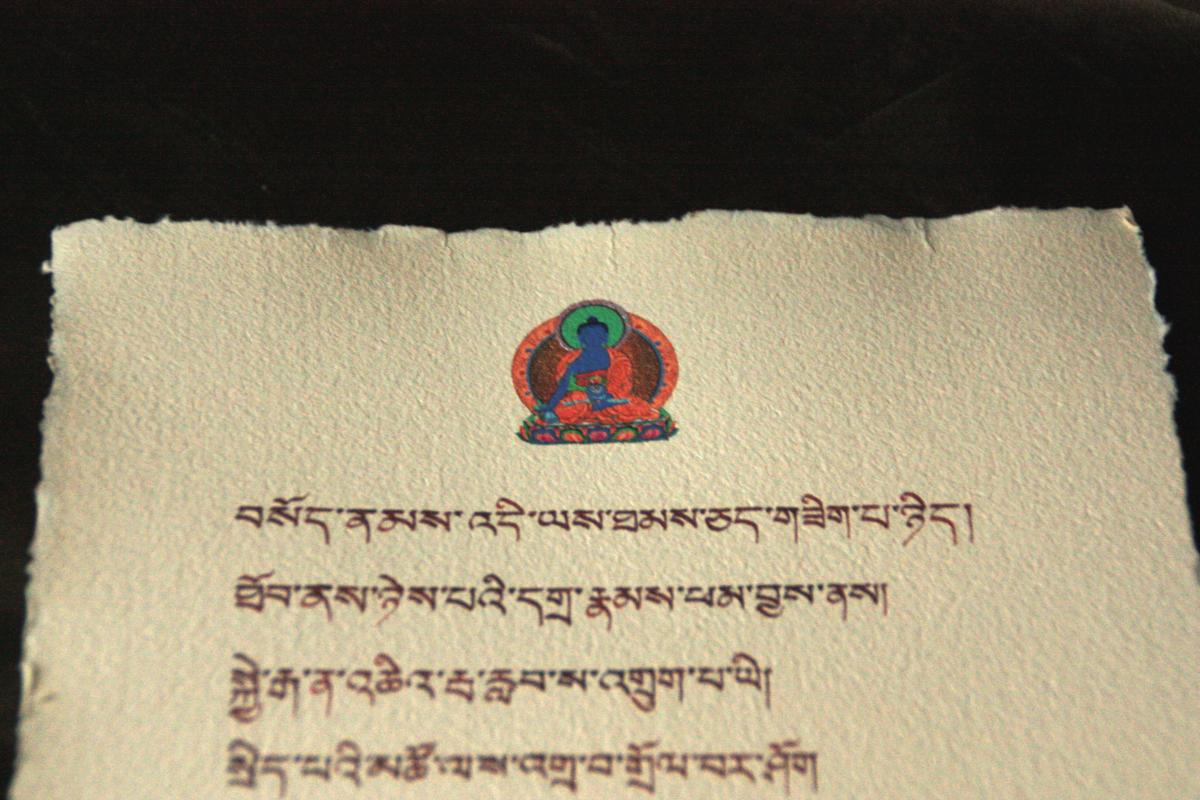 བསོད་ན་མས་འདི་ཡས་ཐམས་ཅད་གཟིག་པ་ཉིད།
ཐོབ་ནས་ཉེས་པའི་དགྲ་རྣམས་ཕམ་བྱས་ནས།
སྐྱེ་རྒ་ན་འཆིར་རྦ་རླབ་ས་འགྲུག་པ་ཡི།
སྲིད་པའི་མཚོ་ལས་འགྲ་བ་གྲོལ་བར་ཤོག